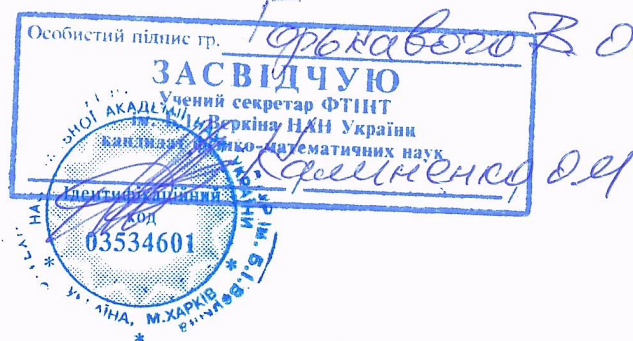 Особистий підпис гр. Горькавого В О
ЗАСВІДЧУЮ
Учений секретар ФТІНТ
ім. Б.І. Вєркіна НАН України
кандидат фізико-математичних наук
Калиненко О М
Ідентифікаційний
код
03534601
АКАДЕМІЇ
ім. Б.І.Вєркіна
М.ХАРКІВ